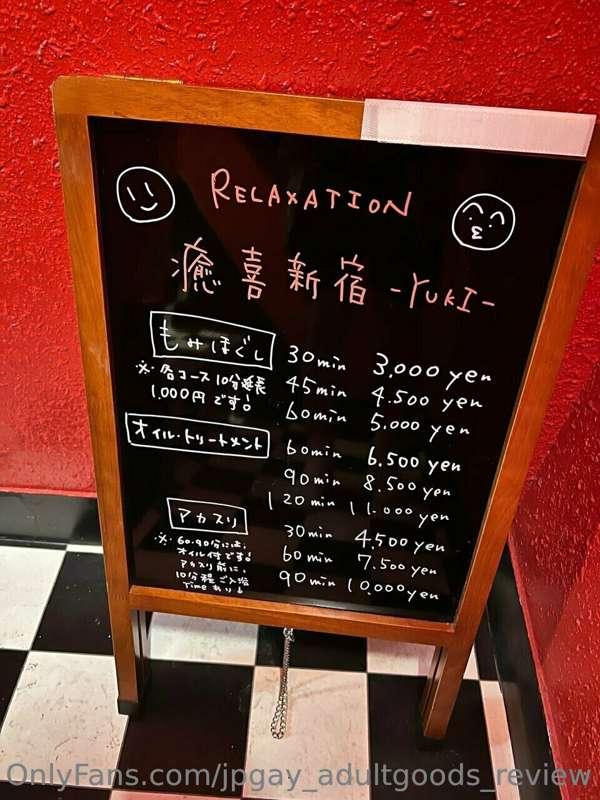 RELAXATION
癒喜新宿 -YUKI-
もみほぐし
※各コース10分延長
1,000円です!
30min 3,000yen
45min 4,500yen
60min 5,000yen
オイル・トリートメント
60min 6,500yen
90min 8,500yen
120min 11,000yen
アカスリ
※60・90分には、
オイル付です!
アカスリ前に
10分程ご入浴
Timeあり
30min 4,500yen
60min 7,500yen
90min 10,000yen
OnlyFans.com/jpgay_adultgoods_review